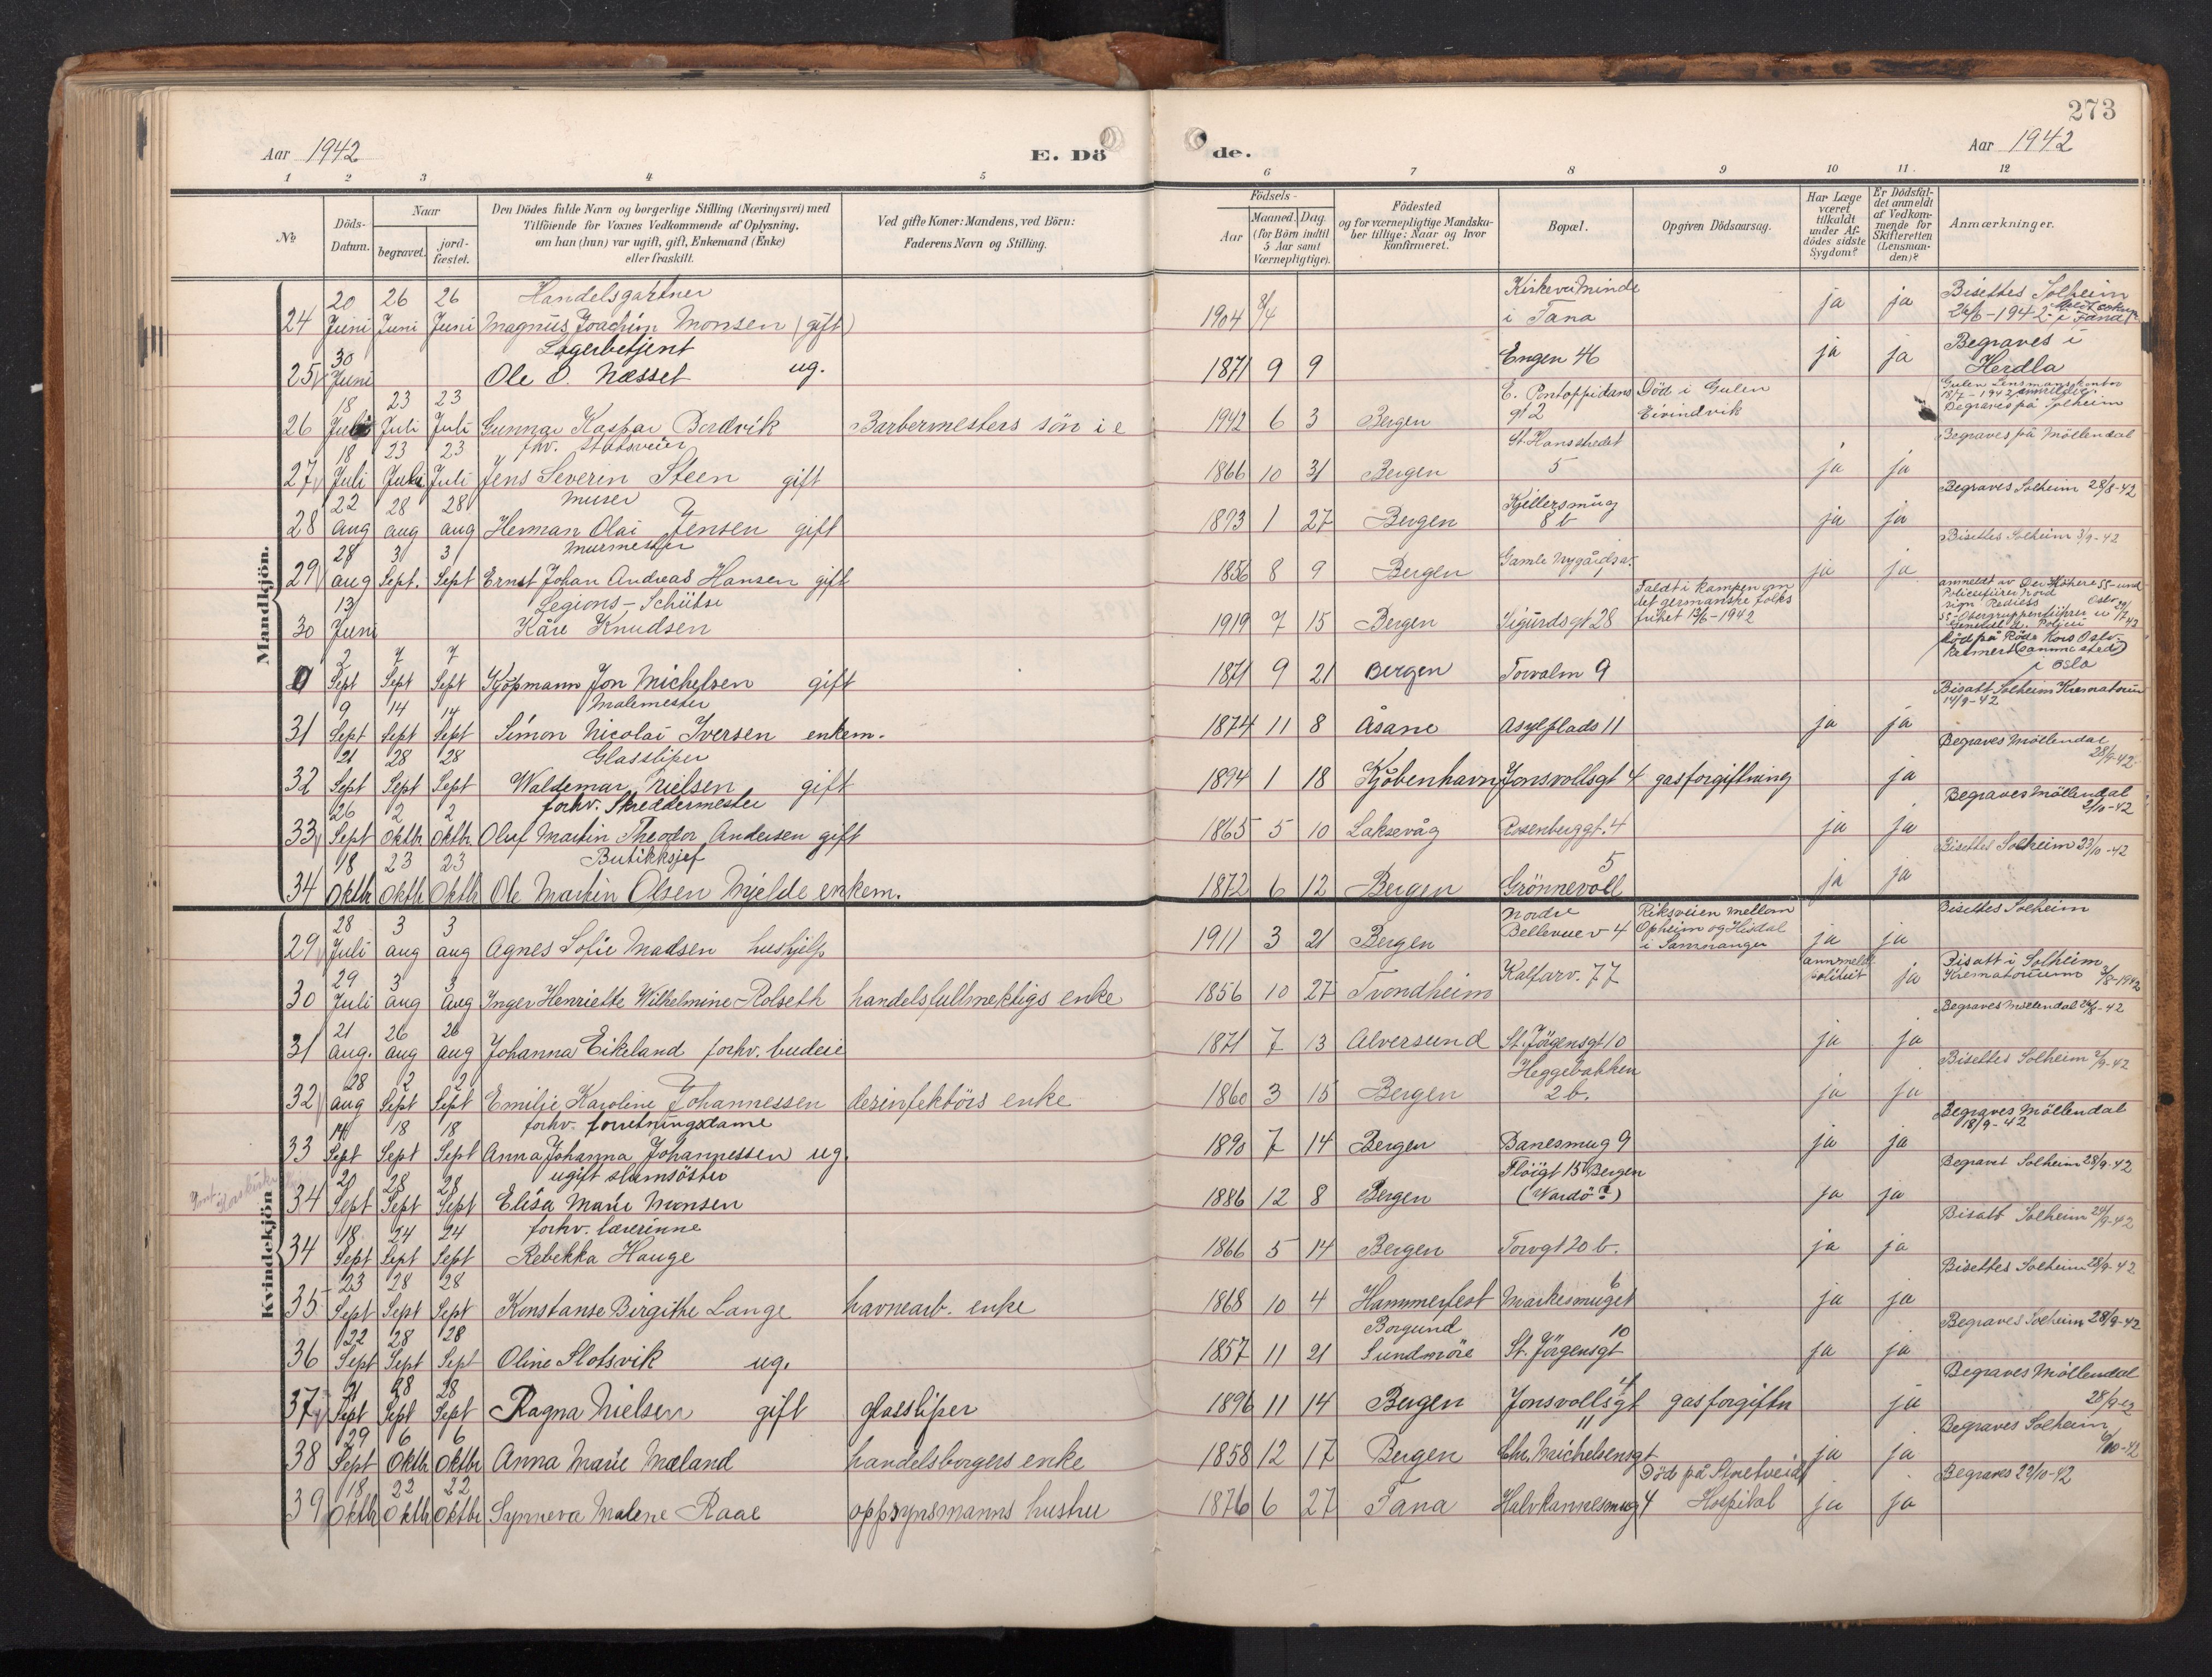 273
Aar 1942
E. Dö
de.
Aar 1942
1 2 3 4 5
6 7 8 9 10 11. 12
No
Döds-Datum.
Naar
begravet.
jord-fæstet.
Den Dödes fulde Navn og borgerlige Stilling (Næringsvei) med
Tilföiende for Voxnes Vedkommende af Oplysning,
om han (hun) var ugift, gift, Enkemand (Enke)
eller fraskilt.
Ved gifte Koner: Mandens, ved Börn:
Faderens Navn og Stilling.
Födsels-
Aar
Maaned. Dag.
(for Börn indtil
5 Aar samt
Værnepligtige).
Födested
og for værnepligtige Mandska-
ber tillige: Naar og hvor
konfirmeret.
Bopæl.
Opgiven Dödsaarsag.
Har Læge
været
tilkaldt
under Af-
dödes sidste
Sygdom?
Er Dödsfal-
det anmeldt
af Vedkom-
mende for
Skifteretten
(Lensman-
den)?
Anmærkninger.
Mandkjön.
24 20 Juni 26 Juni 26 Juni Handelsgartner
Magnus Joachim Monsen (gift)
1904 8/4 i Fana ja ja Bisettes Solheim
26/6-1942
25 30 Juni Lagerbetjent
Ole O. Næsset ug.
1871 9 9 Engen 46 ja ja Begraves i
Herdla
26 18 Juli 23 Juli 23 Juli Gunnar Kaspar Bordvik Barbermesters sön i e
1942 6 3 Bergen E. Pontoppidans
gt 2 Död i Gulen
Eivindvik
Gulen Lensmannskontor
18/7-1942 anmeldes
Begraves på Solheim
27 18 Juli 23 Juli 23 Juli fhv. statsveier
Jens Severin Steen gift
1866 10 31 Bergen St. Hansstredet
5 ja ja Begraves på Möllendal
28 22 aug 28 aug 28 aug murer
Herman Olai Jensen gift
1893 1 27 Bergen Kjellersmug
8 b ja ja Begraves Solheim 28/8-42
29 28 aug 3 Sept. 3 Sept Murmester
Ernst Johan Andreas Hansen gift
1856 8 9 Bergen Gamle Nygårdsv.
1 ja ja Bisettes Solheim 3/9-42
30 13 Juni Legions-Schütse
Kåre Knudsen
1919 7 15 Bergen Sigurdsgt 28 Faldt i kampen om
det germanske folks
frihet 13/6-1942
anmeldt av Der Höhere SS-und
Policeführer Nord Oslo
2 Sept 7 Sept 7 Sept Kjöpmann Jon Michelsen gift
1871 9 21 Bergen Torvalm 9
död på Röde Kors Oslo.
kremert (samme sted)
i Oslo
31 9 Sept 14 Sept 14 Sept Malemester
Simon Nicolai Iversen enkem.
1874 11 8 Åsane Asylplads 11 ja ja Bisatt Solheim Krematorium
14/9-42
32 21 Sept 28 Sept 28 Sept Glassliper
Waldemar Nielsen gift
1894 1 18 Kjöbenhavn Jonsvollsgt 4 gasforgiftning ja Begraves Möllendal
28/9-42
33 26 Sept 2 Oktbr 2 Oktbr. forhv. Skreddermester
Oluf Martin Theodor Andersen gift
1865 5 10 Laksevåg Rosenberggt. 4 ja ja Begraves Möllendal
2/10-42
34 18 Oktbr 23 Oktbr 23 Oktbr Butikksjef
Ole Martin Olsen Mjelde enkem.
1872 6 12 Bergen Grönnevoll
5 ja ja Bisettes Solheim 23/10-42
Kvindekjön
29 28 Juli 3 aug 3 aug Agnes Sofie Madsen hushjelp
1911 3 21 Bergen Nordre
Bellevue v 4 Riksveien mellom
Opheim og Hisdal
i Samnanger ja ja Bisettes Solheim
30 29 Juli 3 aug 3 aug Inger Henriette Wilhelmine Rolseth handelsfullmektigs enke
1856 10 27 Trondheim Kalfarv. 77 anmeldt
politiet ja Bisatt i Solheim
Krematorium 3/8-1942
31 21 aug. 26 aug 26 aug Johanna Eikeland forhv. budeie
1871 7 13 Alversund St. Jörgensgt 10 ja ja Begraves Möllendal 26/8-42
32 28 aug 2 Sept 2 Sept Emilie Karoline Johannessen desinfektörs enke
1860 3 15 Bergen Heggebakken
2 b. ja ja Bisettes Solheim 2/9-42
33 14 Sept 18 Sept 18 Sept forhv. forretningsdame
Anna Johanna Johannessen ug.
1890 7 14 Bergen Banesmug 9 ja ja Begraves Möllendal
18/9-42
34 20 Sept 28 Sept 28 Sept ugift slumsöster
Elisa Marie Monsen
1886 12 8 Bergen Flöigt 15 Bergen
(Vardö?) ja ja Begravet Solheim 28/9-42
34 18 Sept 24 Sept 24 Sept forhv. lærerinne
Rebekka Hauge
1866 5 14 Bergen Torvgt 20 b. ja ja Bisatt Solheim 24/9-42
35 23 Sept 28 Sept 28 Sept Konstanse Birgithe Lange havnearb. enke
1868 10 4 Hammerfest Markesmuget
6 ja ja Bisettes Solheim 28/9-42
36 22 Sept 28 Sept 28 Sept Oline Slotsvik ug.
1857 11 21 Borgund
Sundmöre St. Jörgensgt
10 ja ja Begraves Solheim 28/9-42
37 21 Sept 28 Sept 28 Sept Ragna Nielsen gift glassliper
1896 11 14 Bergen Jonsvollsgt
4 gasforgiftn ja Begraves Möllendal
28/9-42
38 29 Sept 6 Oktbr 6 Oktbr Anna Marie Mæland handelsborgers enke
1858 12 17 Bergen Chr. Michelsensgt
11 ja ja Begraves Solheim
6/10-42
39 18 Oktbr 22 Oktbr 22 Oktbr Synneva Malene Raae oppsynsmanns hustru
1876 6 27 Fana Halvkannesmug 4 Död på Storetveid
Hospital ja ja Begraves 22/10-42